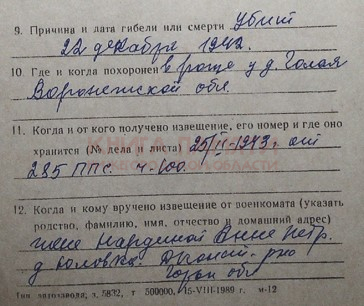 9. Причина и дата гибели или смерти убит
22 декабря 1942.
10. Где и когда похоронен в роще у д. Голая
Воронежской обл.
11. Когда и от кого получено извещение, его номер и где оно
хранится (№ дела и листа) 25/II-1943г. от
285 ППС. Ч-100.
12. Когда и кому вручено извещение от военкомата (указать
родство, фамилию, имя, отчество и домашний адрес)
жене Нардиной Анне Петр.
д.
обл
Тип автозавода, з. 5832, т 500000, 15-VIII-1989 г. м-12